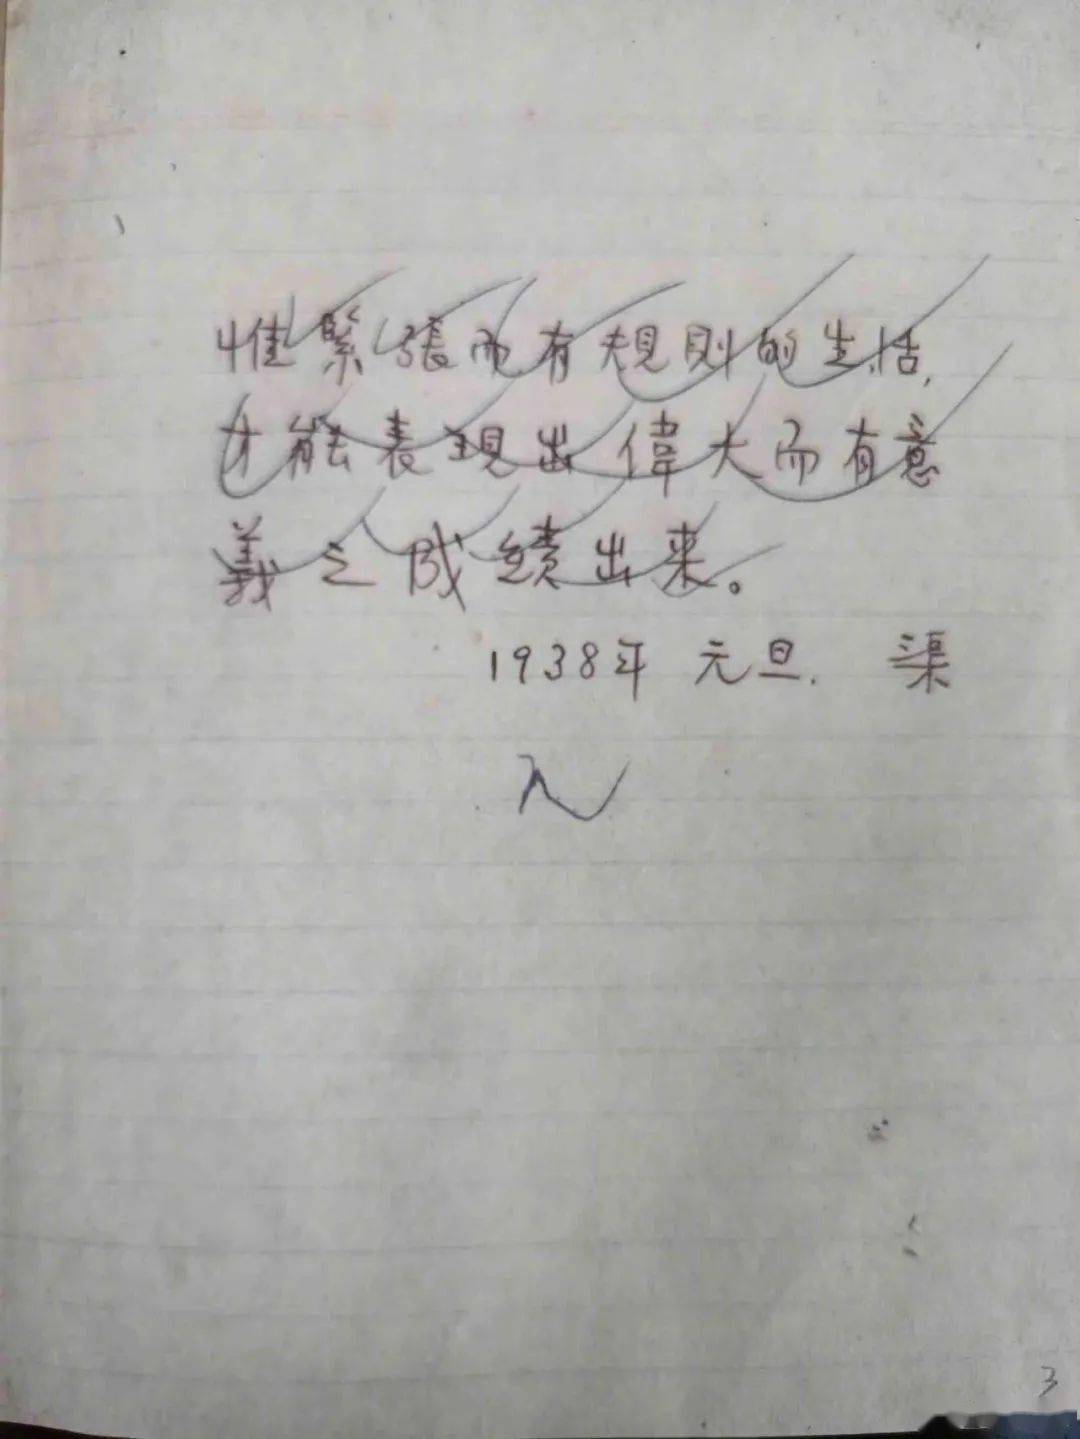 惟緊張而有規則的生活,
才能表現出偉大而有意
義之成績出來。
1938年 元旦. 渠
3